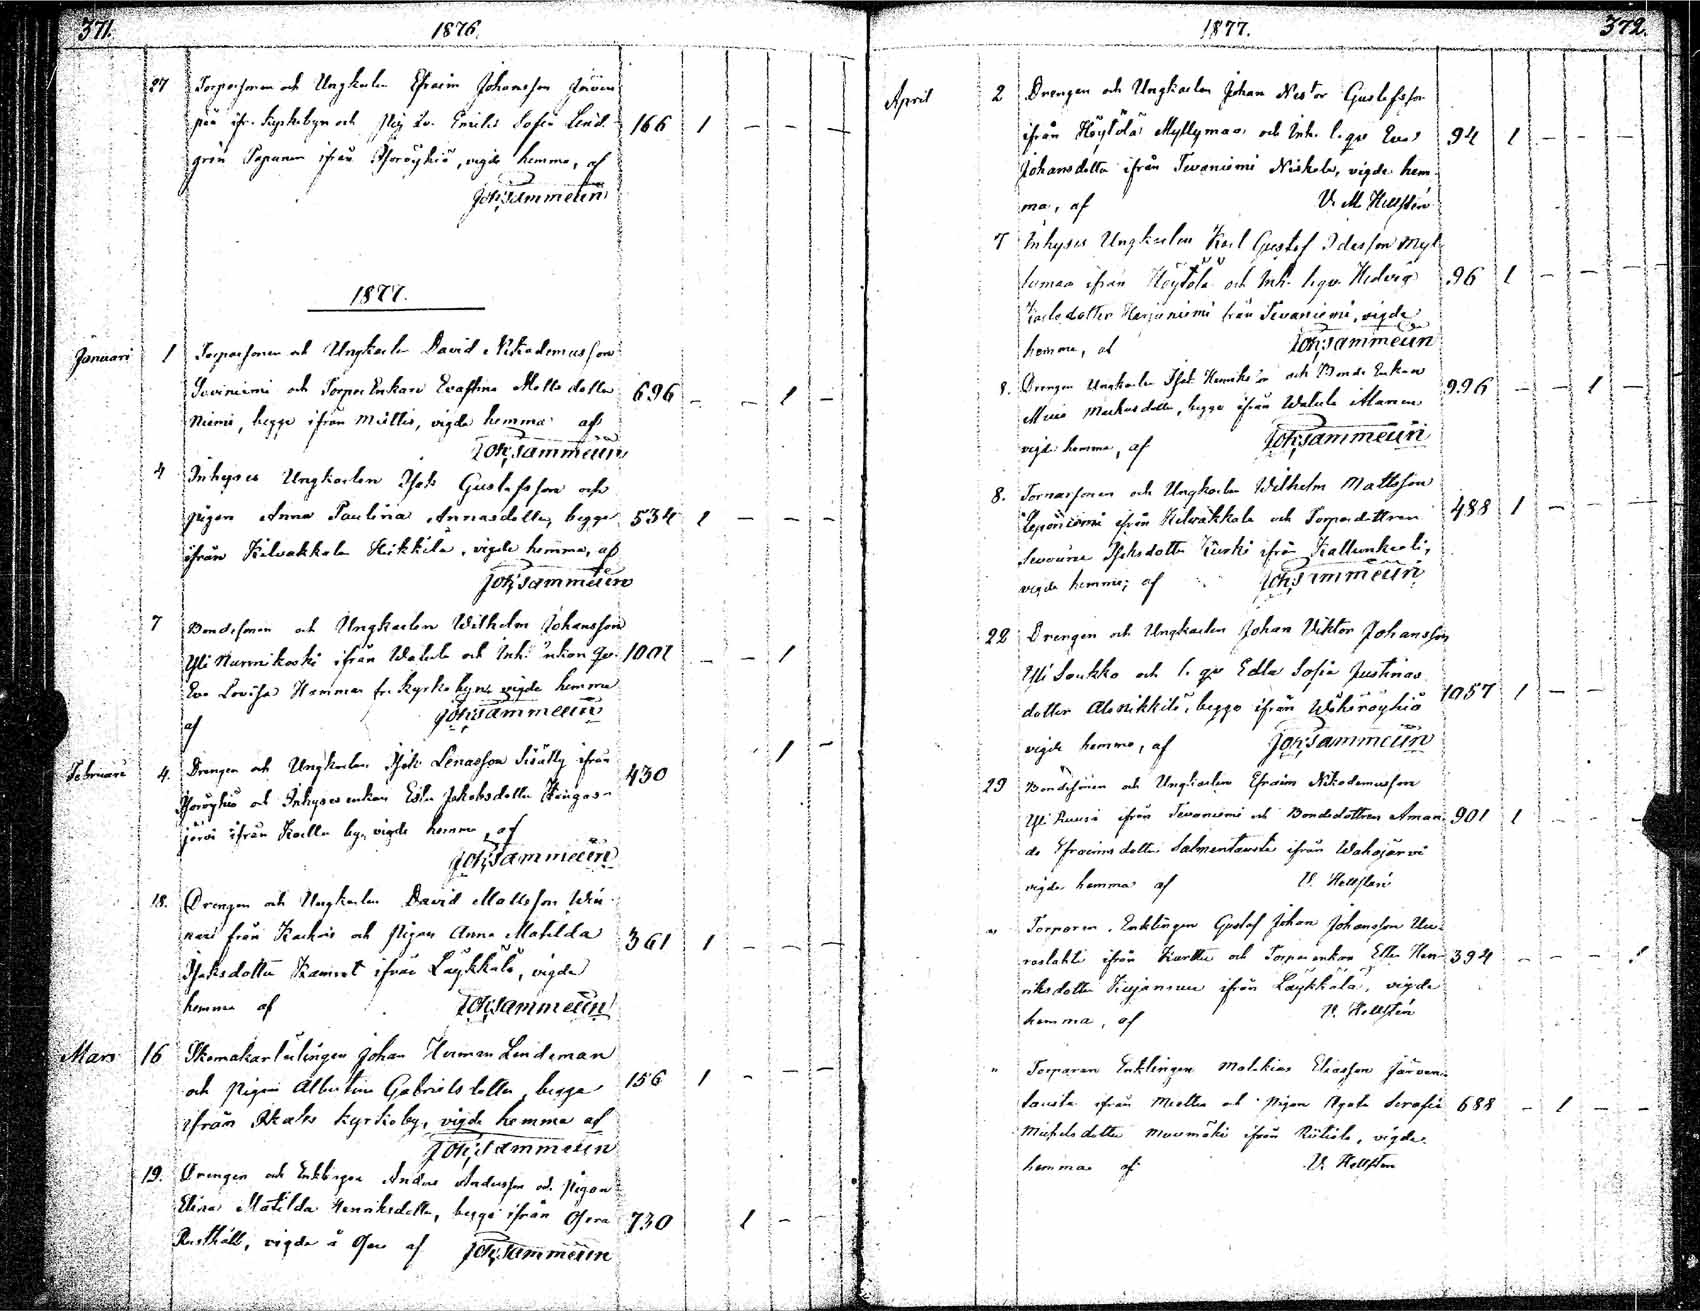 371.
1876.
27 Torparsonen och Ungkarlen Efraim Johansson Järven
pää ifr. Kyrkobyn och Pig. Emilia Sofia Lind-
grén Papanen ifrån Pöröyhiö, vigde hemma, af 166 1 – – –
Joh. Sammelin
1877.
Januari 1 Torparsonen och Ungkarlen David Nikodemusson
Saviniemi och Torpar Enkan Evastina Matts dotter 696 – – 1 –
Niemi, begge ifrån Miettis, vigde hemma af
Joh. Sammelin
4 Inhyses Ungkarlen Isak Gustafsson och
pigan Anna Paulina Annasdotter, begge 534 1 – – –
ifrån Kilvakkala Heikkilä, vigde hemma, af
Joh. Sammelin
7 Bondesonen och Ungkarlen Wilhelm Johansson
Yli Nurmikoski ifrån Watula och Inh. enkan 1001 – – 1
Eva Lovisa Hamman fr. Kyrkobyn, vigde hemma
af Joh. Sammelin
Februari 4. Drengen och Ungkarlen Isak Lenasson ifrån 1 –
och Inhyses enkan Ester Jakobsdotter Kangas- 430
järvi ifrån by, vigde hemma, af
Joh. Sammelin
18. Drengen och Ungkarlen David Mattsson
från och Pigan Anna Matilda 361 1 – – –
Isaksdotter ifrån Läykkälä, vigde
hemma af Joh. Sammelin
Mars 16 Skomakarlärlingen Johan Herman Lindeman
och pigan Albertina Gabriels dotter, begge 156 1 – – –
ifrån Ikalis Kyrkoby, vigde hemma af
Joh. Sammelin
19. Drengen och Enklingen Anders Andersson och Pigan
Elina Matilda Henriksdotter, begge ifrån Osara 730 1 –
Rusthåll, vigde å Osara af Joh. Sammelin
1877.
372.
April 2 Drengen och Ungkarlen Johan Nestor Gustafsson
ifrån Höytölä Myllymaa och Inh. l. qv. Eva 94 1 – – –
Johansdotter ifrån Tevaniemi Niskala, vigde hem
ma, af V. M. Hellstén
7 Inhyses Ungkarlen Karl Gustaf Idasson Myl
lymaa ifrån Höytölä och Inh. l. qv. Hedvig 96 1 – – –
Karlsdotter Harjuniemi från Tevaniemi, vigde
hemma, af Joh. Sammelin
8. Drengen Ungkarlen Isak Henriksson och Bonde Enkan 996 – – 1 –
Maria Markusdotter, begge ifrån Watula Alanen
vigde hemma, af Joh. Sammelin
8. Torparsonen och Ungkarlen Wilhelm Mattsson
Leponiemi ifrån Kilvakkala och Torparedottren 488 1 – – –
Isaksdotter Kurki ifrån Kallunkieli,
vigde hemma, af Joh. Sammelin
28 Drengen och Ungkarlen Johan Viktor Johansson
Yli Soukko och l. qv. Edla Sofia Justinas
dotter Alanikkilä, begge ifrån Wähäröyhiö 1057 1 – –
vigde hemma, af Joh. Sammelin
29 Bondesonen och Ungkarlen Efraim Nikodemusson
Yli ifrån Tevaniemi och Bondedottren Aman 901 1 – – –
da Efraims dotter Salmentausta ifrån Wahojärvi
vigde hemma af V. Hellstén
" Torparen Enklingen Gustaf Johan Johansson Uu-
roslahti ifrån Kartu och Torpar enkan Ester Hen- 394 – – – 1
riks dotter ifrån Läykkälä, vigde
hemma, af V. Hellstén
" Torparen Enklingen Malakias Eliasson Järven-
tausta ifrån Miettis och Pigan Agata Serafia 688 – 1 – –
Mickels dotter ifrån Riitiala, vigde
hemma af V. Hellstén